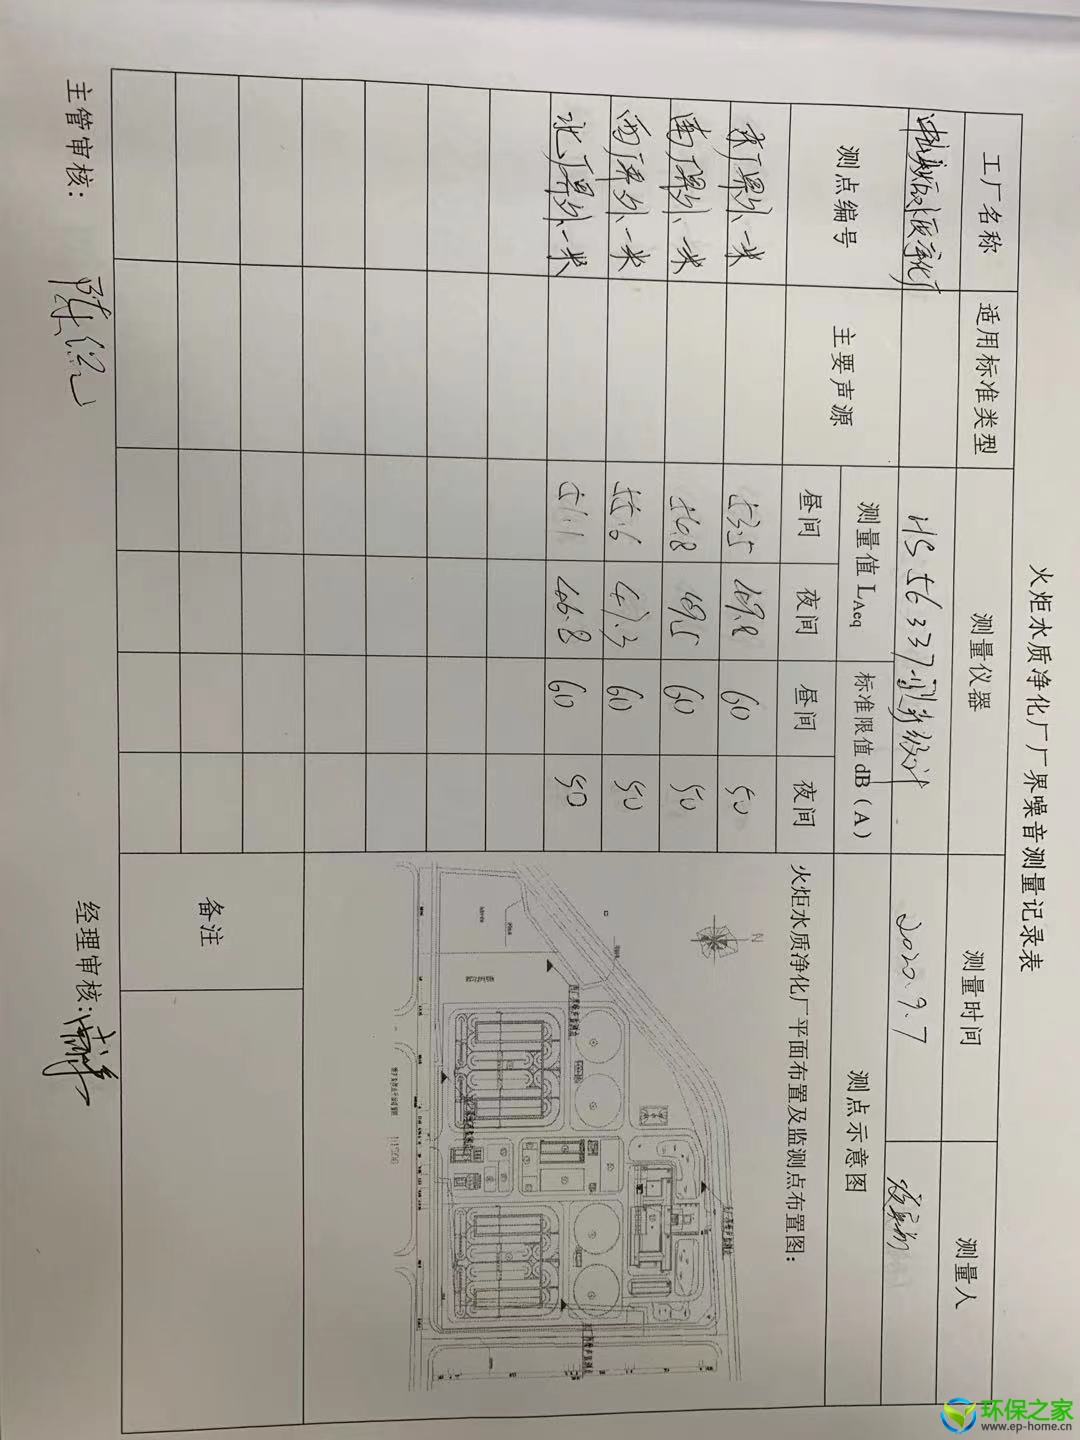 火炬水质净化厂厂界噪音测量记录表
工厂名称 适用标准类型 测量仪器 测量时间 测量人
HS5633 2020.9.7
测点编号 主要声源 测量值 LAeq 标准限值 dB(A) 测点示意图
昼间 夜间 昼间 夜间
东厂界外一米 53.5 49.8 60 50
南厂界外一米 56.8 49.5 60 50
西厂界外一米 55.6 47.3 60 50
北厂界外一米 51.1 46.8 60 50
火炬水质净化厂平面布置及监测点布置图:
N
备注
主管审核:
经理审核:
环保之家
www.ep-home.cn